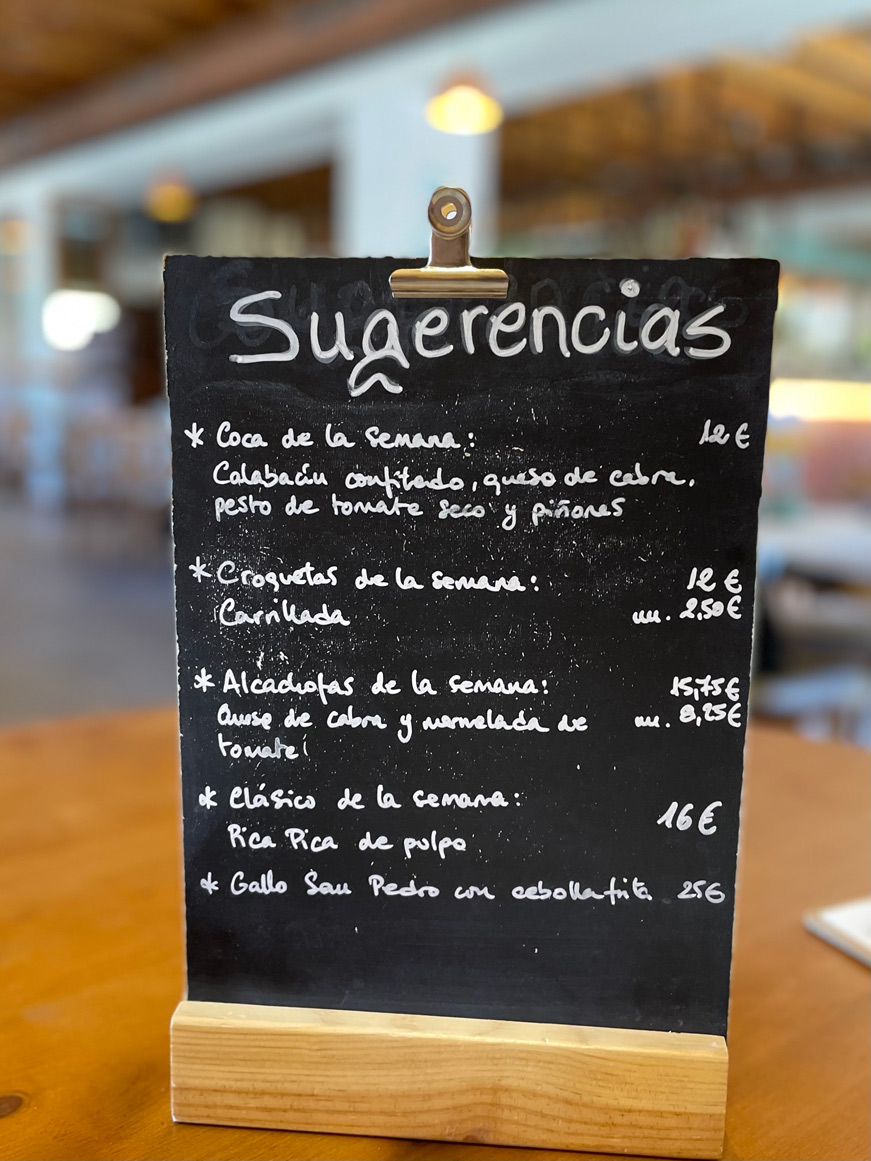 Sugerencias
* Coca de la semana: 12 €
Calabacín confitado, queso de cabra,
pesto de tomate seco y piñones
* Croquetas de la semana: 12 €
Carrillada uu. 2,50€
* Alcachofas de la semana: 15,75€
Queso de cabra y mermelada de uu. 8,25€
tomate
* Clásico de la semana: 16€
Pica Pica de pulpo
* Gallo San Pedro con cebolla frita 25€